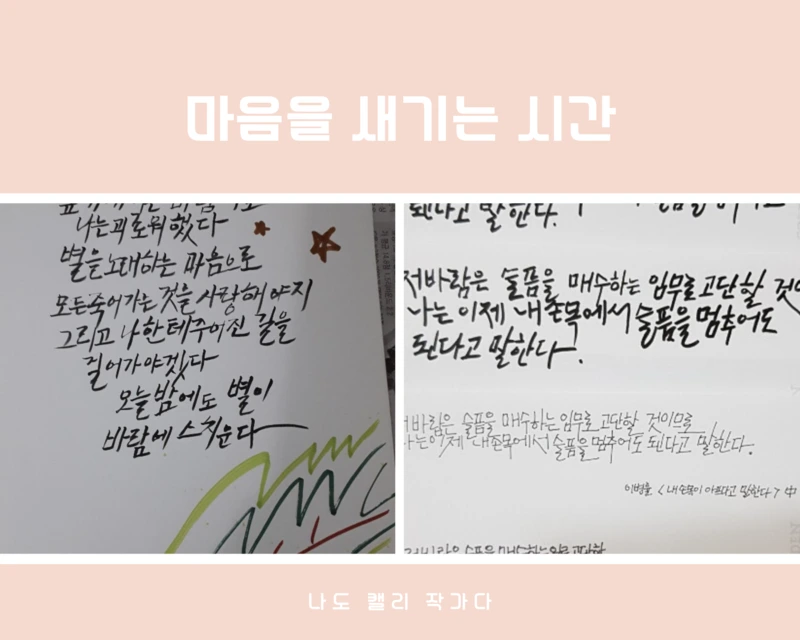 마음을 새기는 시간
나는 괴로워했다
별을 노래하는 마음으로
모든 죽어가는 것을 사랑해야지
그리고 나한테 주어진 길을
걸어가야겠다
오늘 밤에도 별이
바람에 스치운다
된다고 말한다.
저 바람은 슬픔을 매수하는 임무로 고단할
나는 이제 내 손목에서 슬픔을 멈추어도
된다고 말한다.
바람은 슬픔을 매수하는 임무로 고단할 것이므로
이제 내 손목에서 슬픔을 멈추어도 된다고 말한다.
이병률 < 내 손목이 아프다고 말한다 > 中
슬픔을 매수하는 임무로 고단할
나도 캘리 작가다